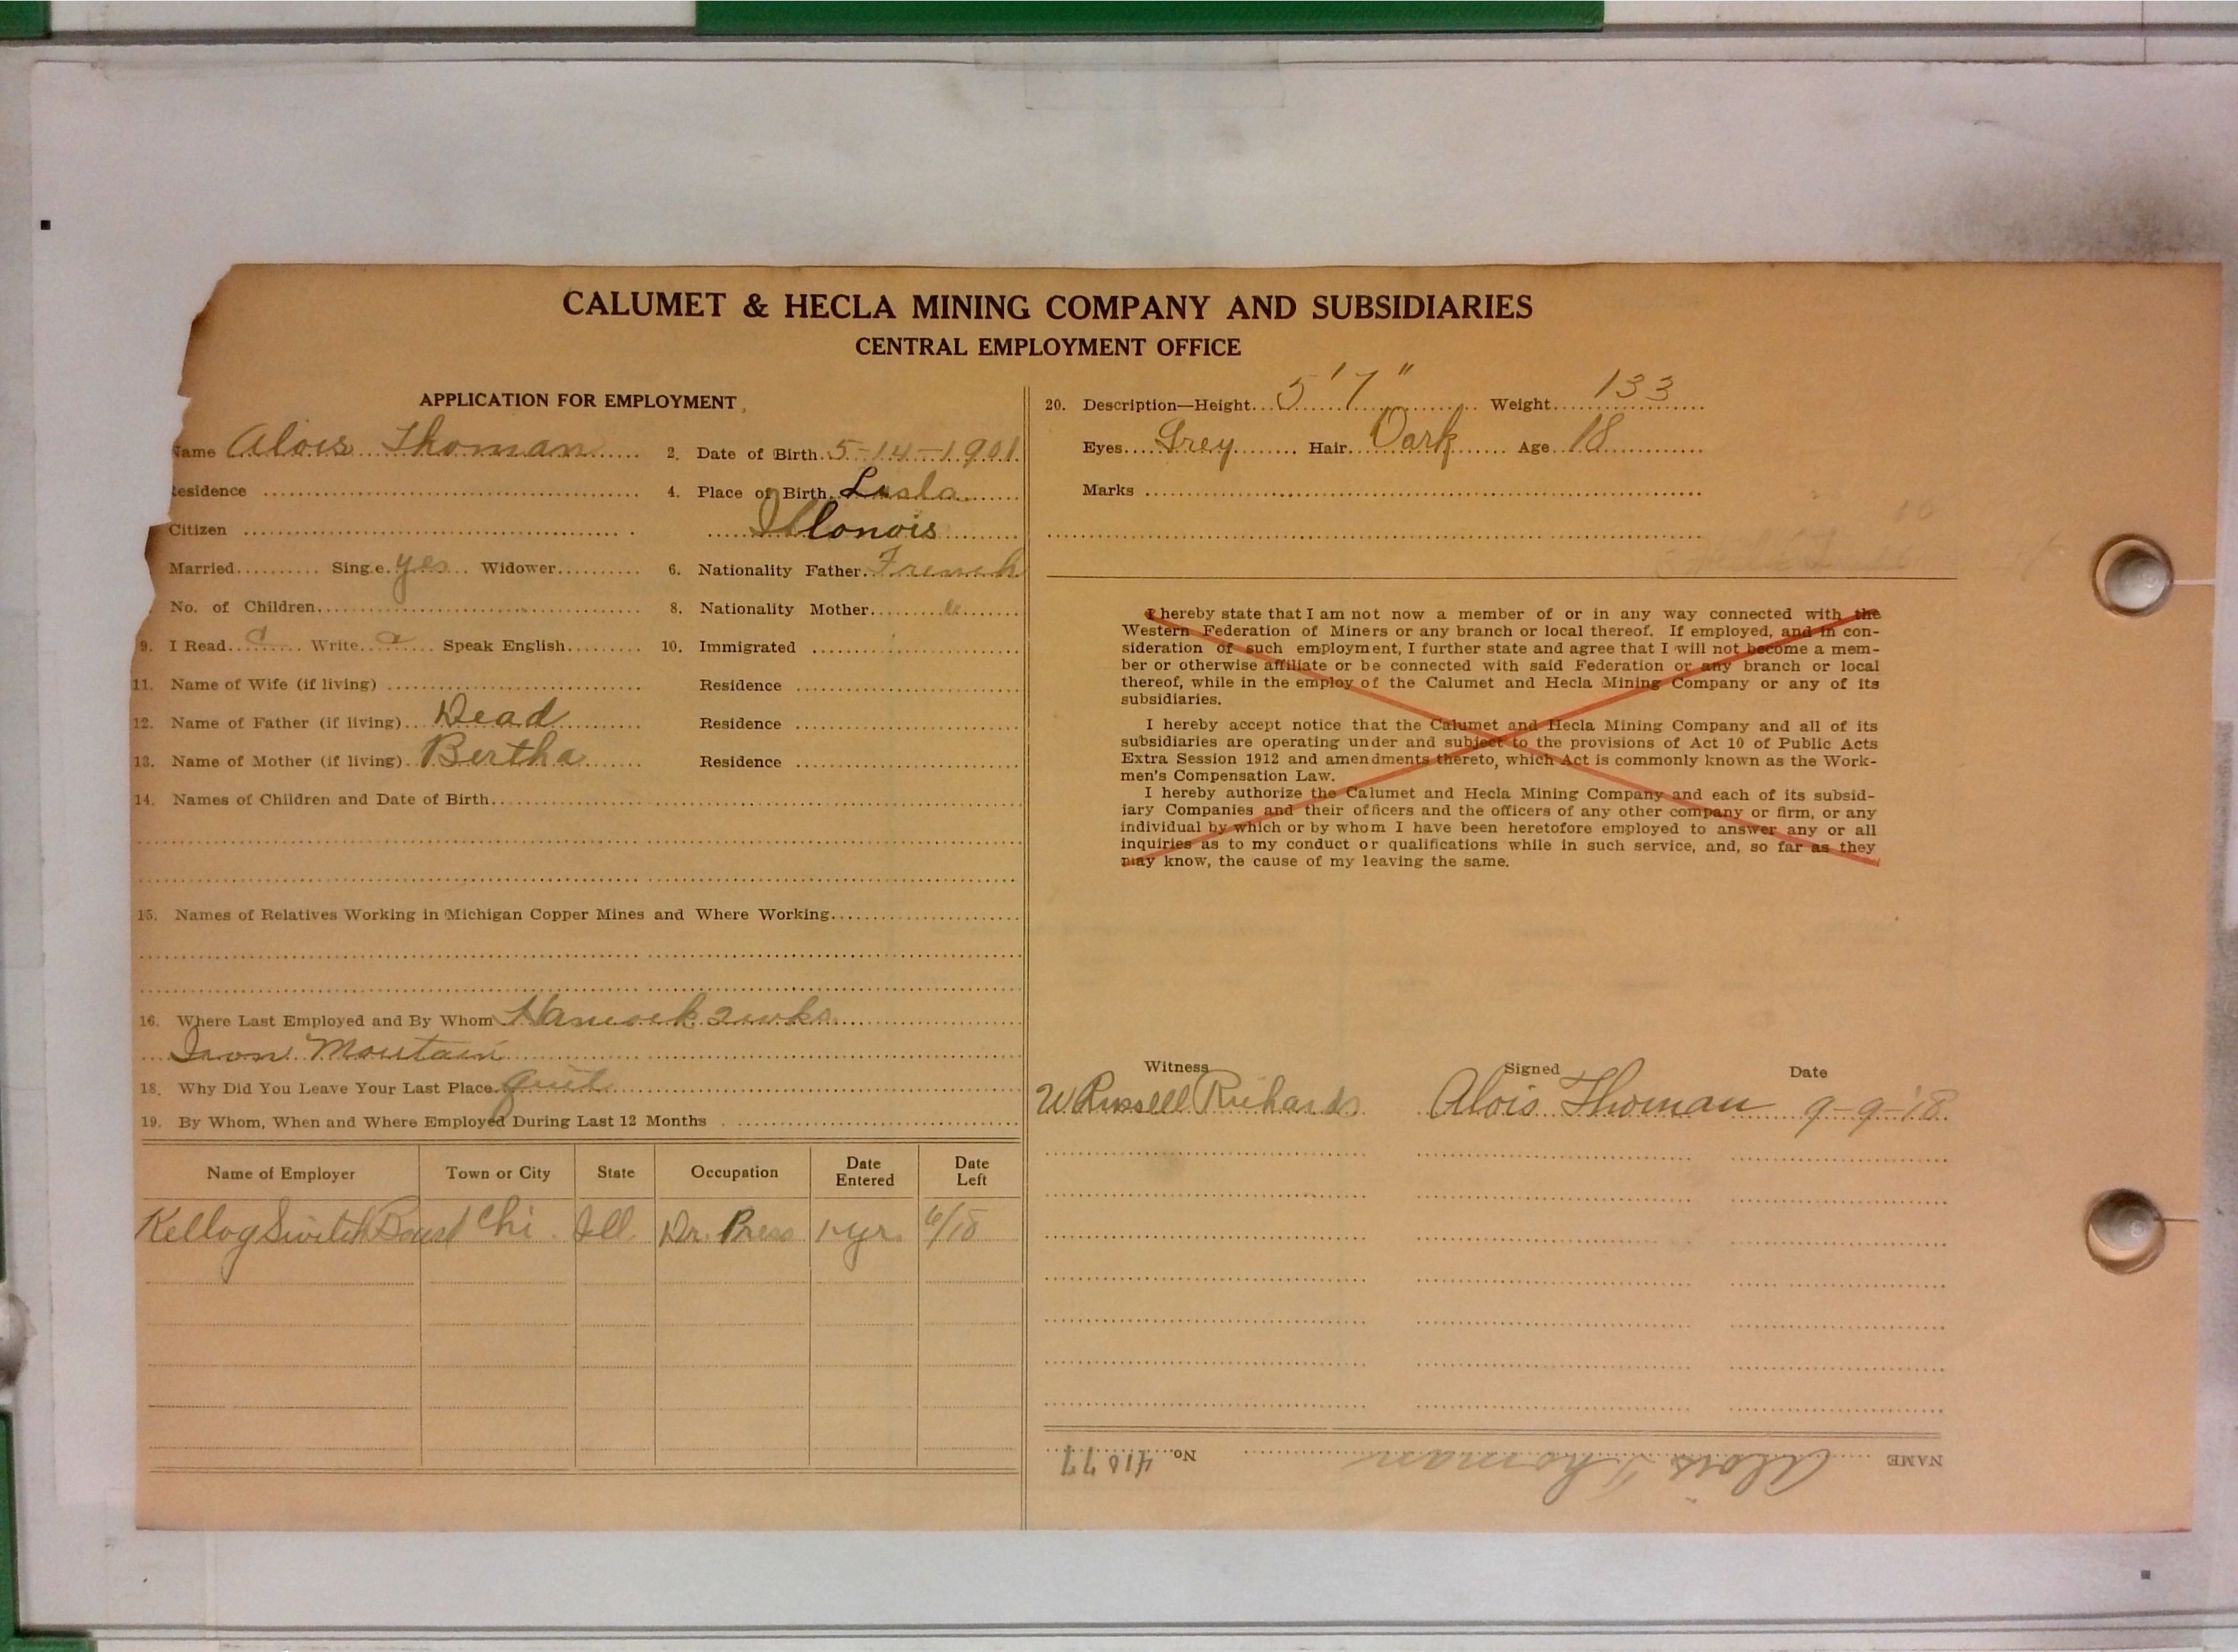 CALUMET & HECLA MINING COMPANY AND SUBSIDIARIES
CENTRAL EMPLOYMENT OFFICE
APPLICATION FOR EMPLOYMENT
Name Alois Thoman 2. Date of Birth 5-14-1901
Residence 4. Place of Birth
Citizen Illonois
Married Single yes Widower 6. Nationality Father French
No. of Children 8. Nationality Mother
9. I Read Write Speak English 10. Immigrated
11. Name of Wife (if living) Residence
12. Name of Father (if living) Dead Residence
13. Name of Mother (if living) Bertha Residence
14. Names of Children and Date of Birth
15. Names of Relatives Working in Michigan Copper Mines and Where Working
16. Where Last Employed and By Whom Hancock 2 wks
Iron Moutain
18. Why Did You Leave Your Last Place quit
19. By Whom, When and Where Employed During Last 12 Months
Name of Employer Town or City State Occupation Date Entered Date Left
Kellog Switch Board Chi Ill Dr. Press 1 yr. 6/18
20. Description—Height 5'7" Weight 133
Eyes Grey Hair Dark Age 18
Marks
I hereby state that I am not now a member of or in any way connected with the
Western Federation of Miners or any branch or local thereof. If employed, and in con-
sideration of such employment, I further state and agree that I will not become a mem-
ber or otherwise affiliate or be connected with said Federation or any branch or local
thereof, while in the employ of the Calumet and Hecla Mining Company or any of its
subsidiaries.
I hereby accept notice that the Calumet and Hecla Mining Company and all of its
subsidiaries are operating under and subject to the provisions of Act 10 of Public Acts
Extra Session 1912 and amendments thereto, which Act is commonly known as the Work-
men's Compensation Law.
I hereby authorize the Calumet and Hecla Mining Company and each of its subsid-
iary Companies and their officers and the officers of any other company or firm, or any
individual by which or by whom I have been heretofore employed to answer any or all
inquiries as to my conduct or qualifications while in such service, and, so far as they
may know, the cause of my leaving the same.
Witness Signed Date
W Russell Richards Alois Thoman 9-9-'18
NAME Alois Thoman No. 41077